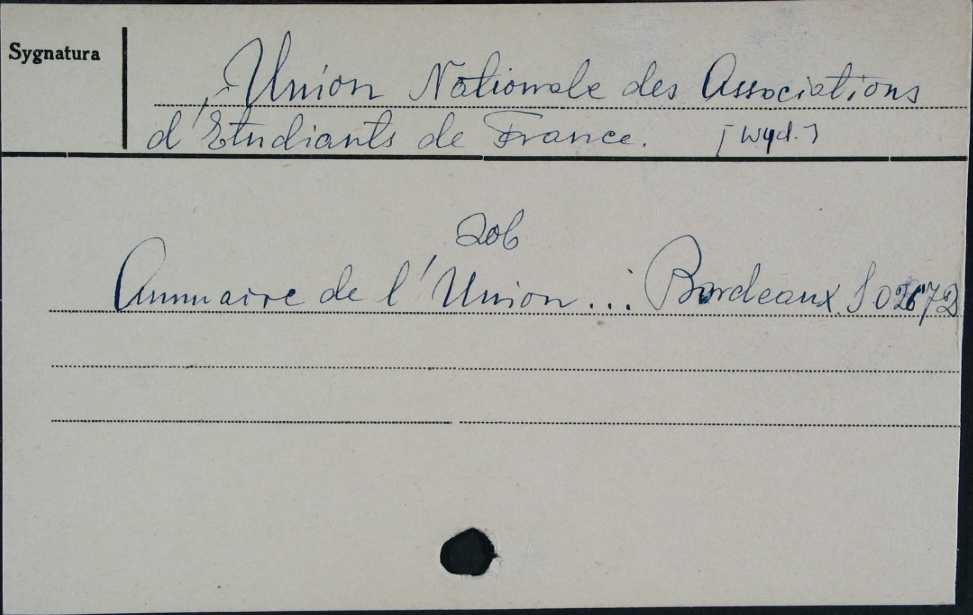 Sygnatura
Union Nationale des Associations
d'Etudiants de France. [Wyd.]
zob
Annuaire de l'Union... Bordeaux. S 02672